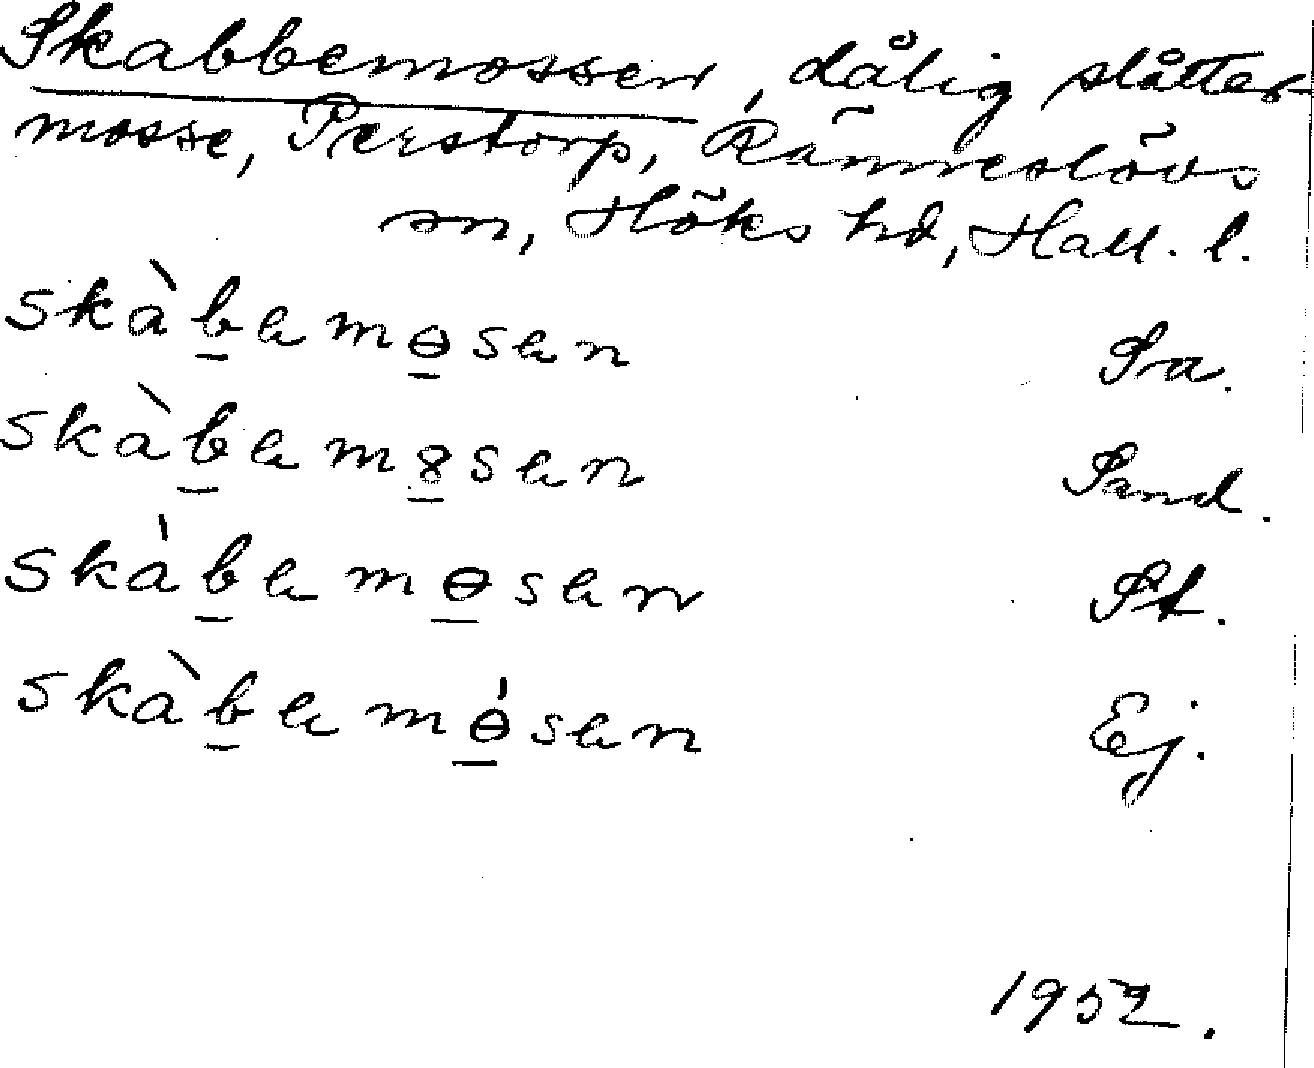 Skabbemossen, dålig slåtter-
mosse, Perstorp, Ränneslövs
sn, Höks hd, Hall. l.
skàb̲emɵ̲sen Sa.
skàb̲em8̲sen Sand.
skàb̲emɵ̲sen St.
skàb̲emɵ̲́sen Ej.
1952.